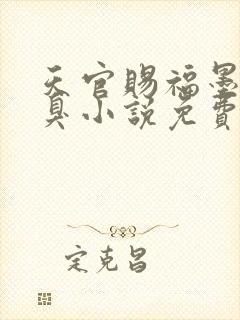 天官賜福墨
臭小說免費
定克昌